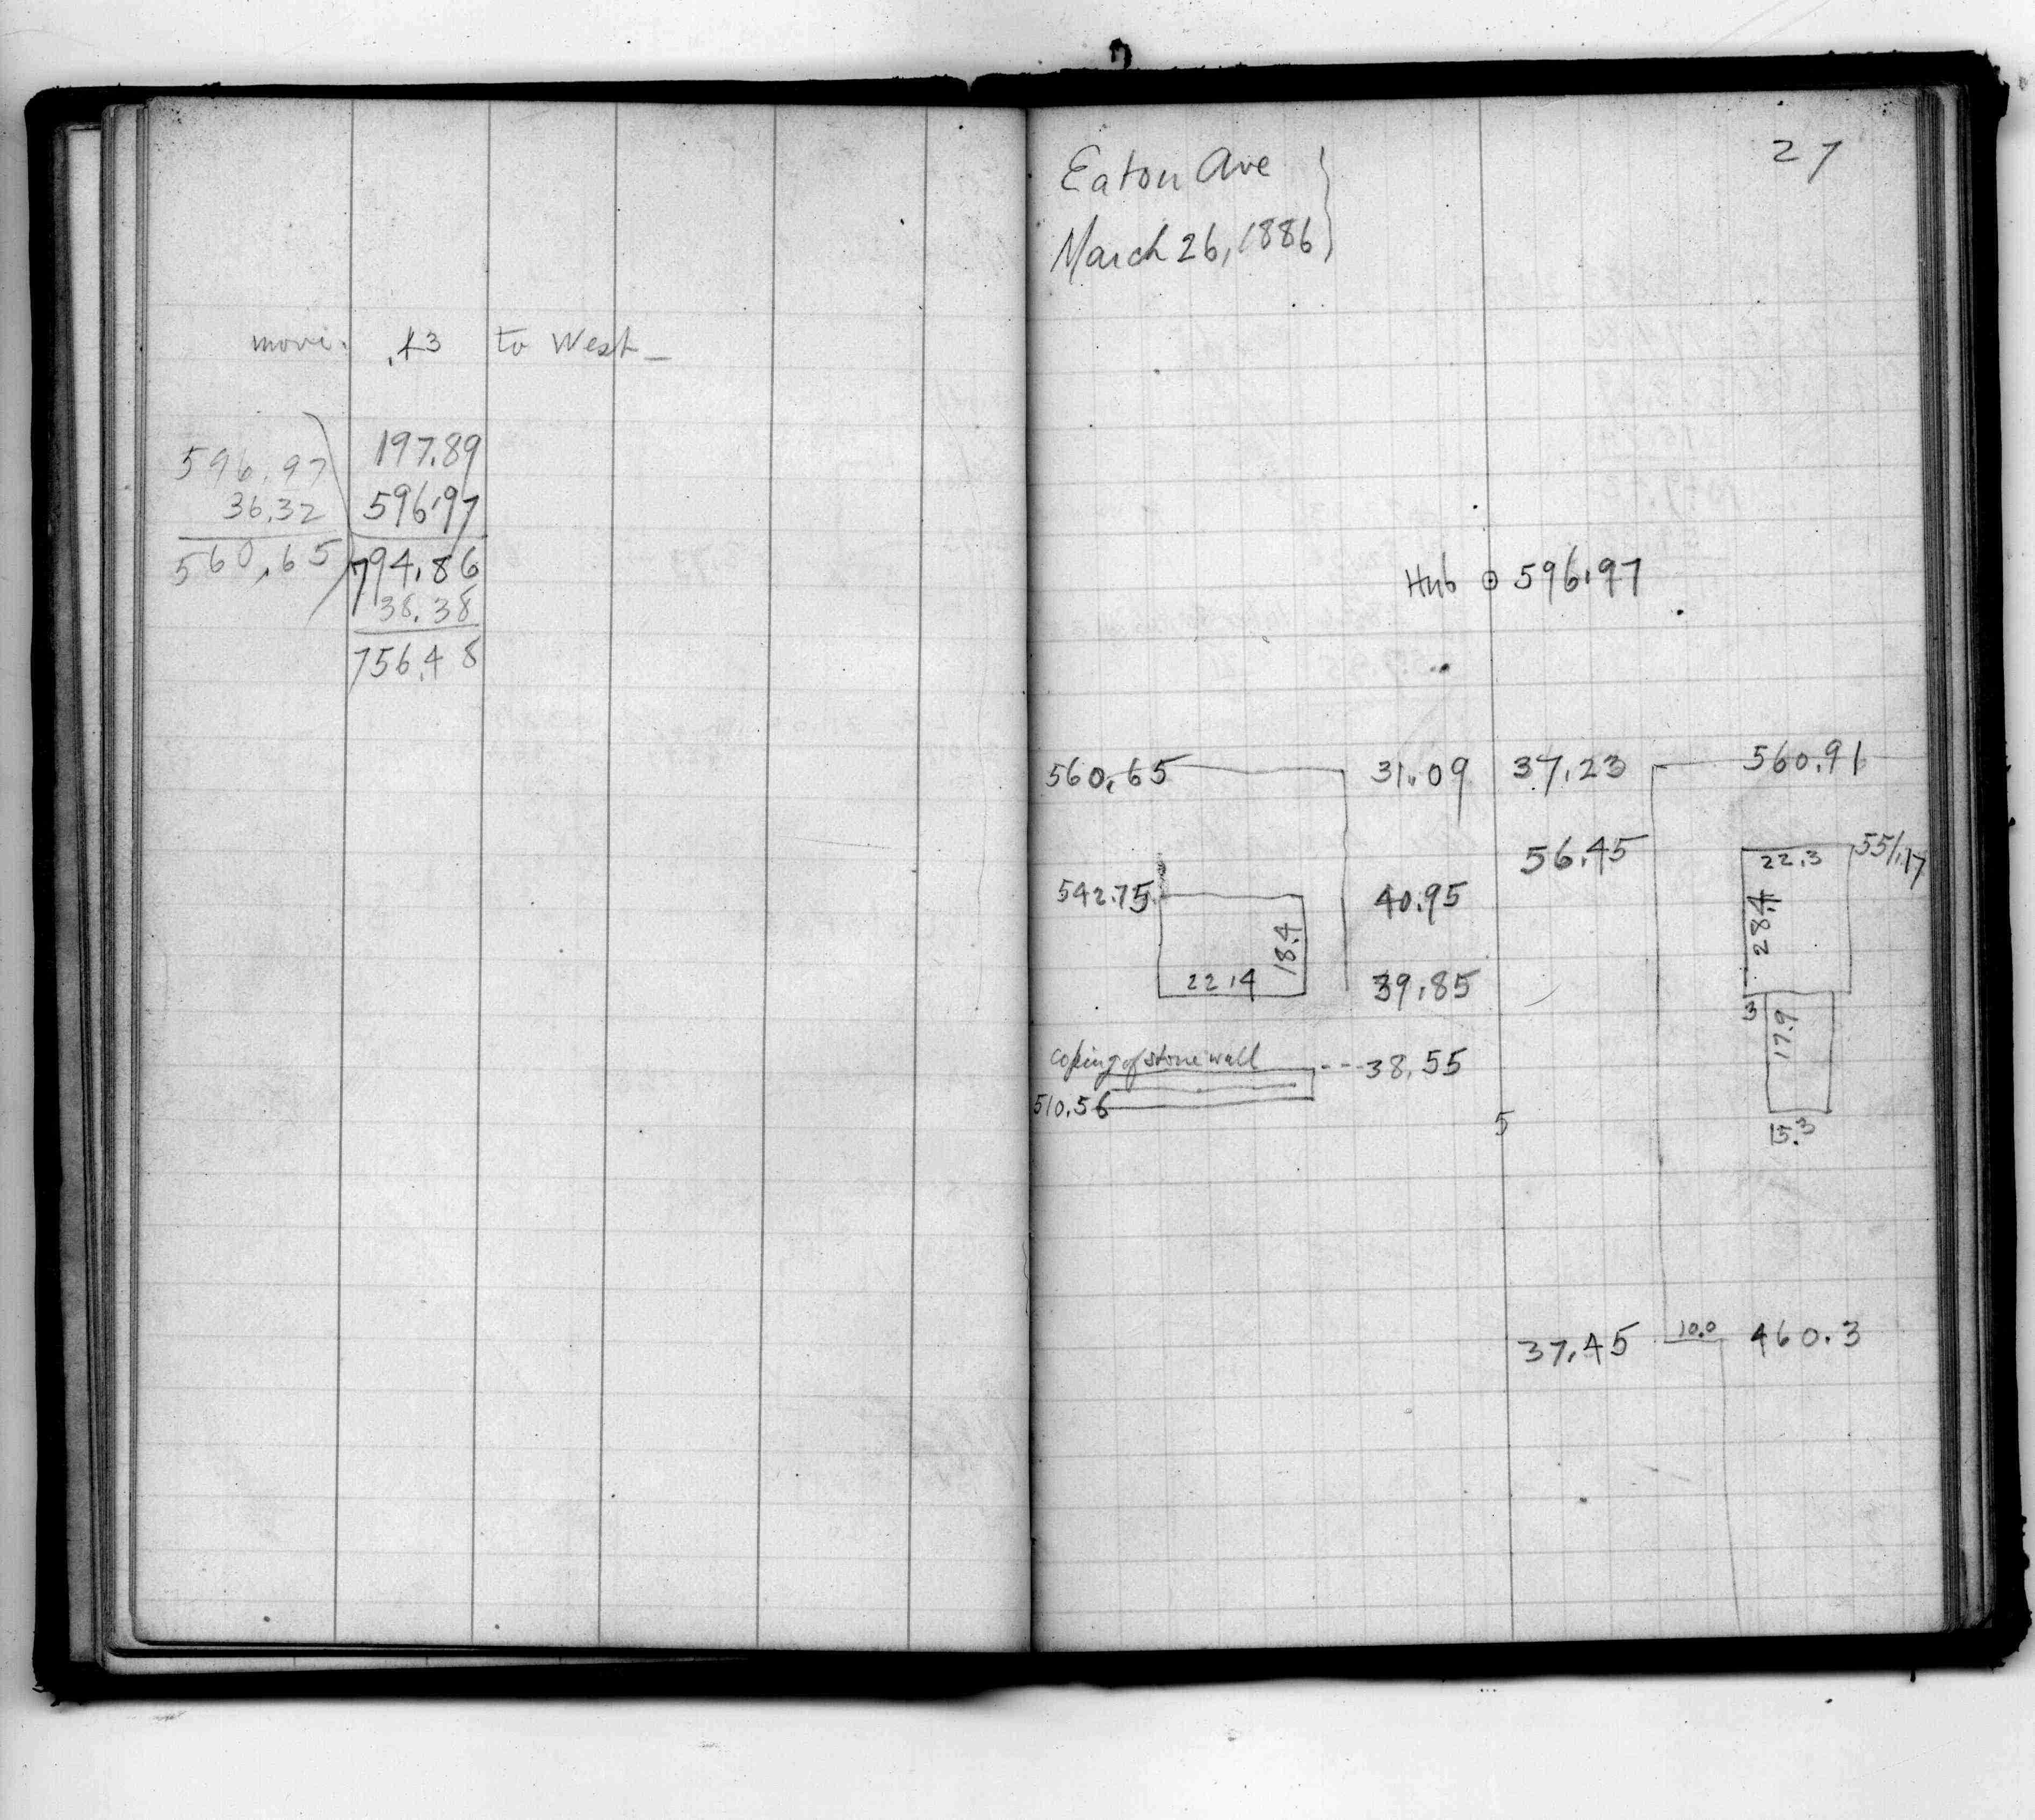 .43 to West
197.89
596.97 596.97
36.32
560.65 794.86
38.38
756.48
27
Eaton Ave
March 26, 1886
Hub ⊙ 596.97
560.65 31.09 37.23 560.91
56.45 22.3 551.17
542.75 40.95 28.4
18.4
22.4 39.85
3 17.9
coping of stone wall --- 38.55
510.56
5 15.3
37.45 10.0 460.3